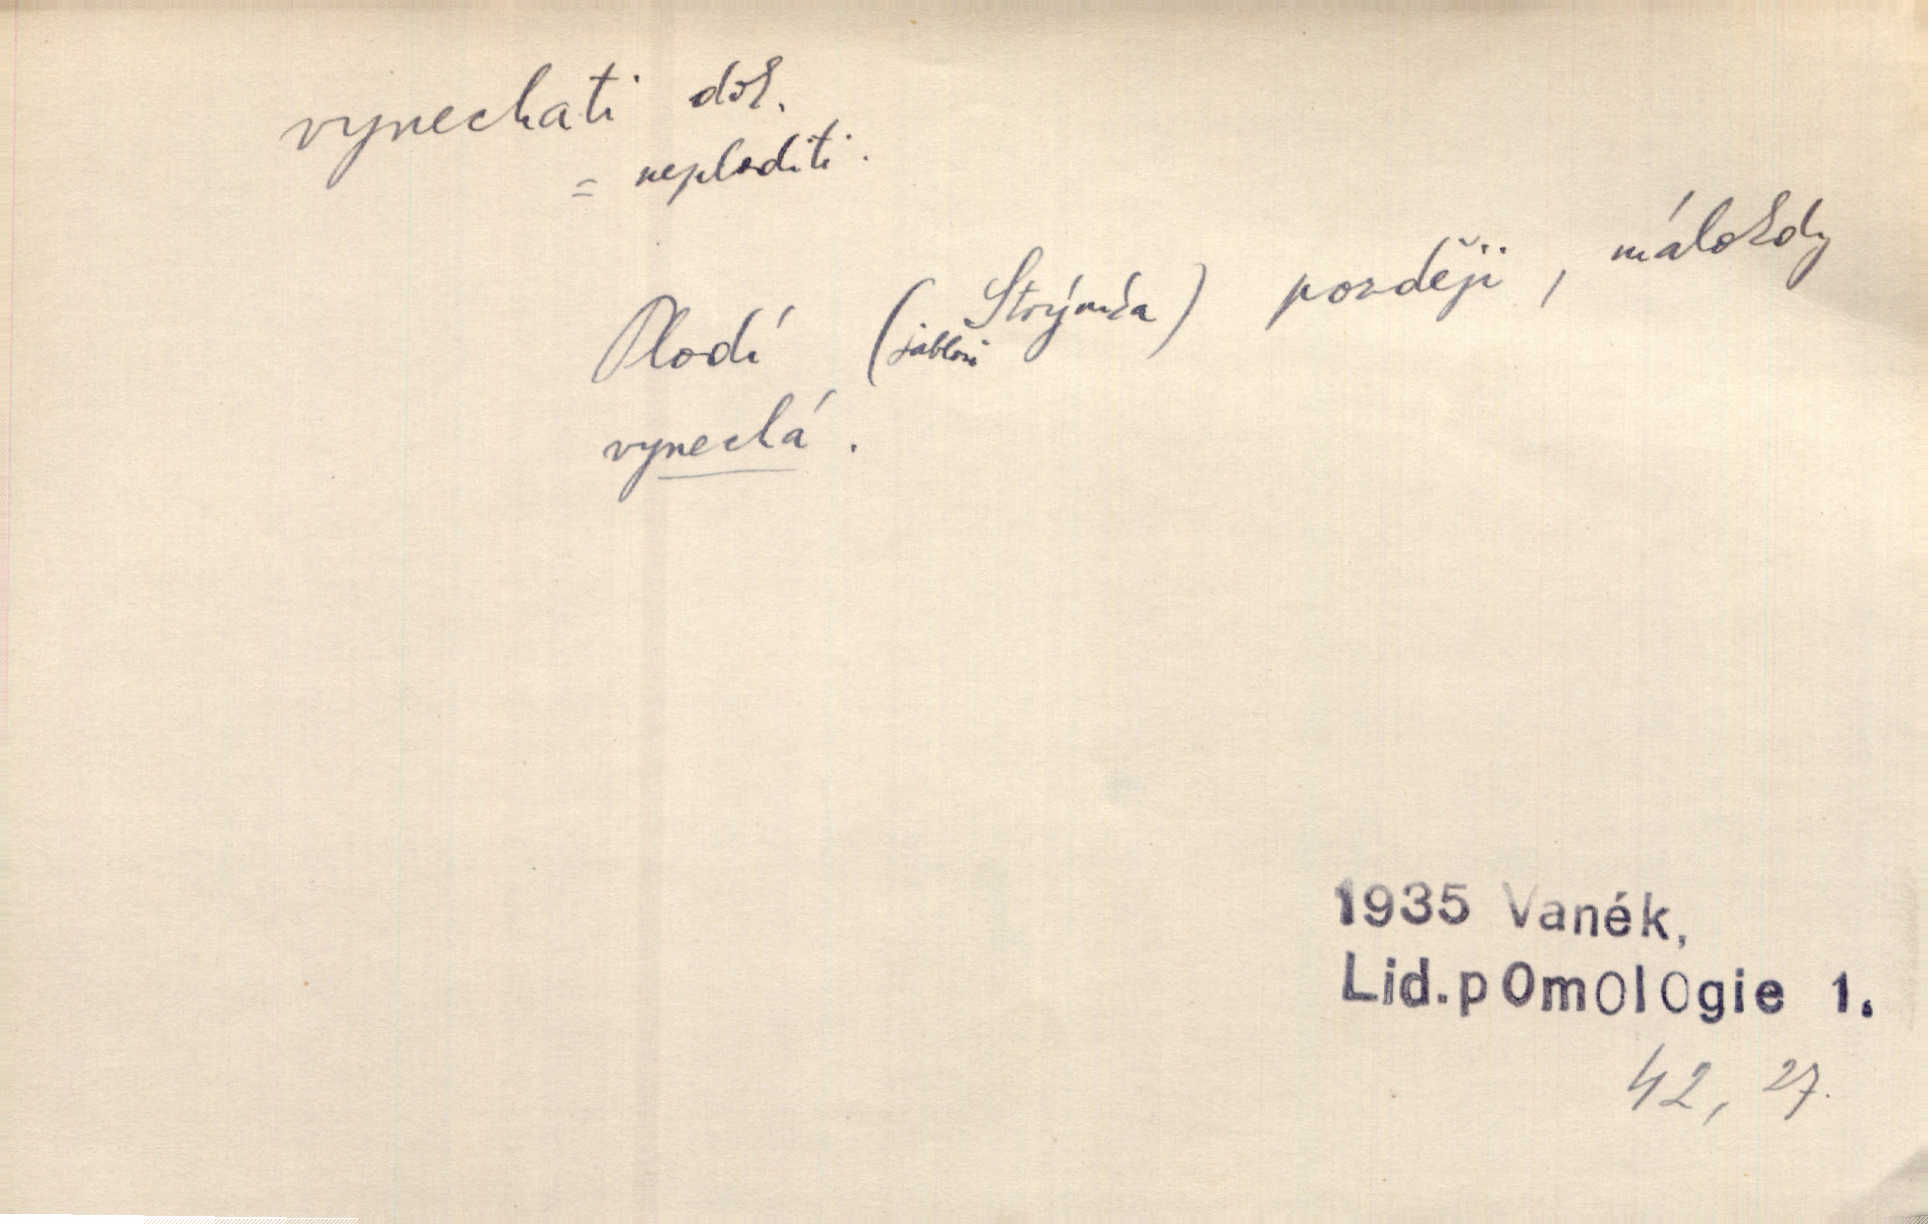 vynechati dok.
= neploditi.
Plodí (jabloň Strýmka) později, málokdy
vynechá.
1935 Vaněk,
Lid.pOmOlOgie 1.
42, 27.